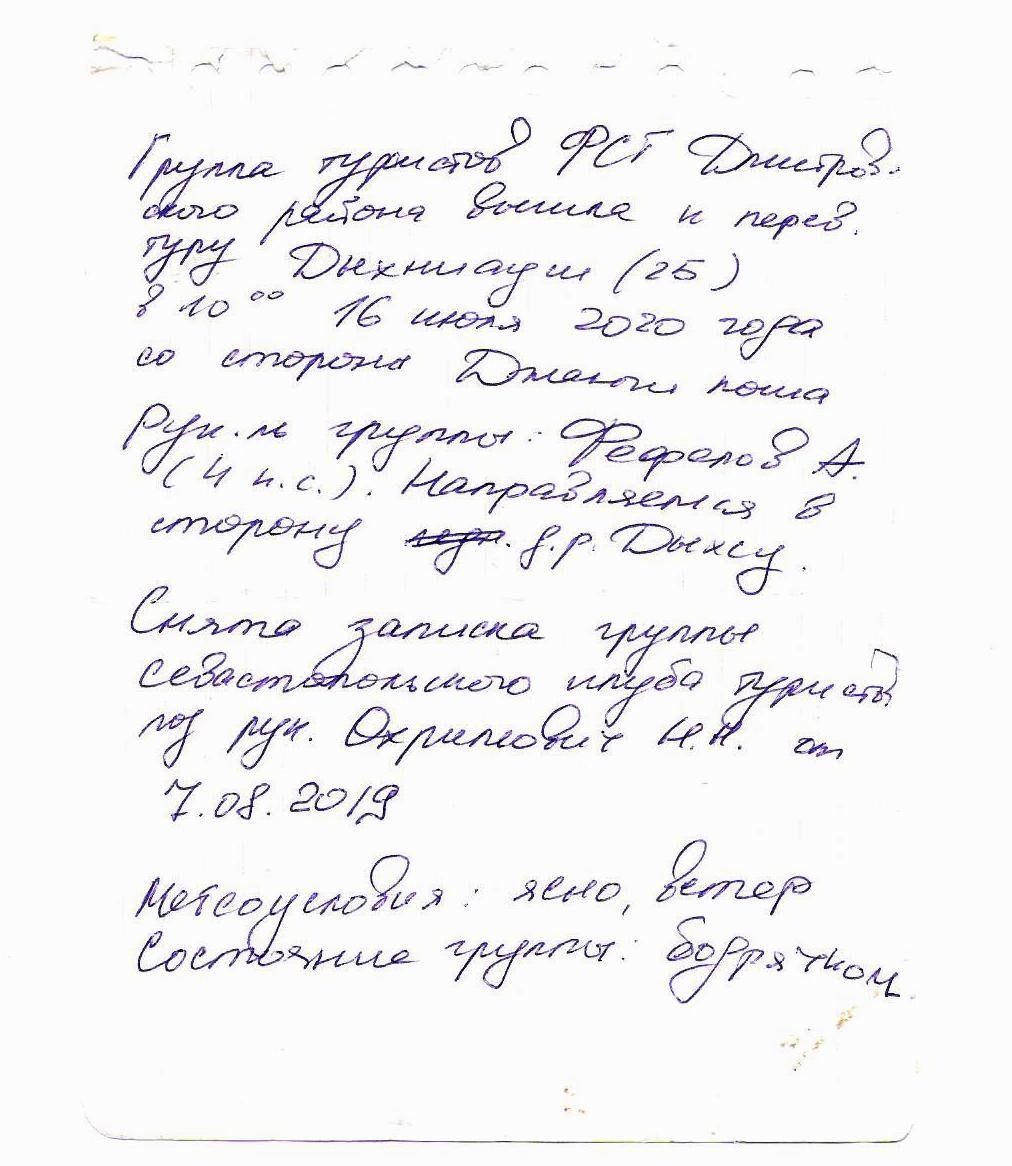 Группа туристов ФСТ Дмитров-
ского района вышла к перев.
туру Дыхниауш (2Б)
в 10⁰⁰ 16 июля 2020 года
со стороны Джанги коша
Рук-ль группы: Фефелов А.
(4 к.с.). Направляемся в
сторону д.р. Дыхсу.
Снята записка группы
севастопольского клуба туристов
под рук. Охримович Н.Н. от
7.08.2019
Метеоусловия: ясно, ветер
Состояние группы: бодрячком